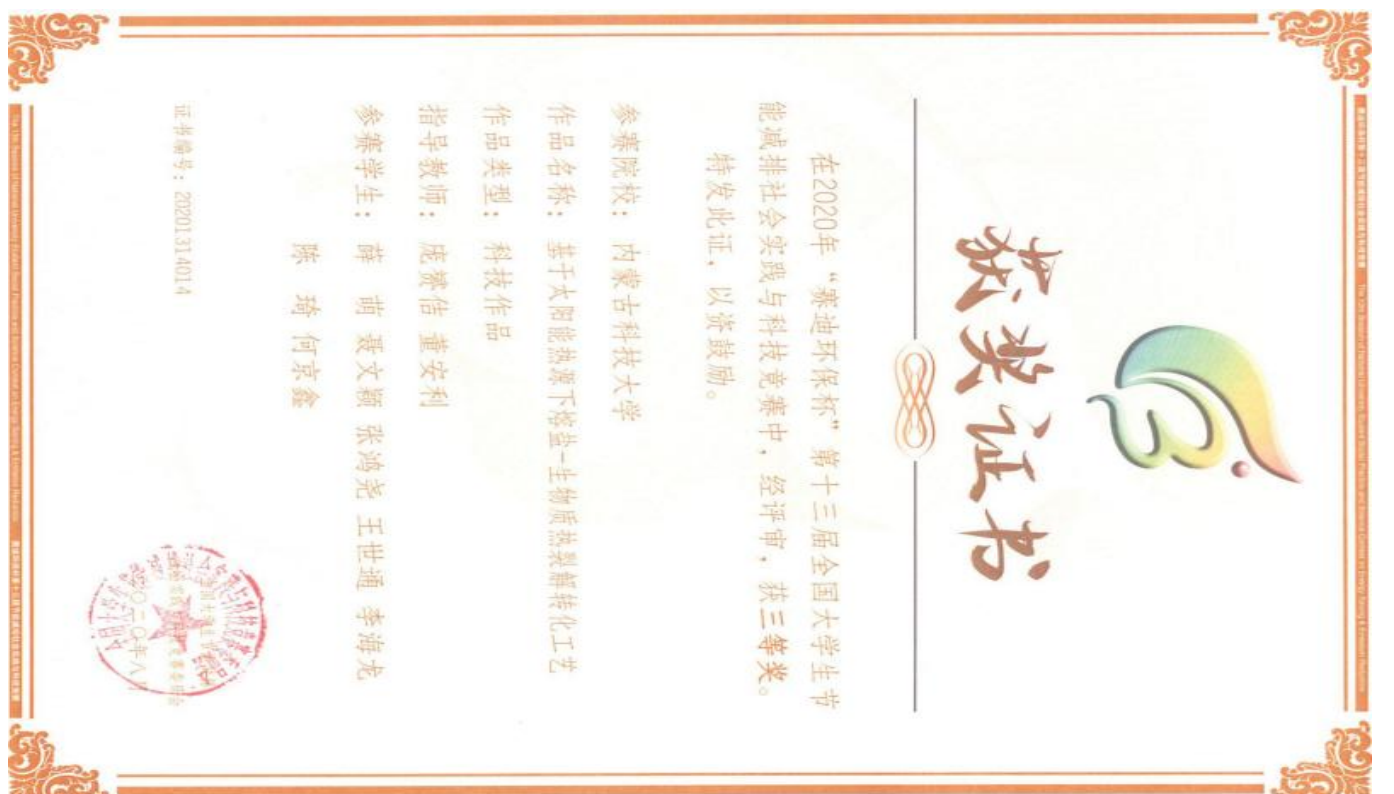 获奖证书
在2020年“赛迪环保杯”第十三届全国大学生节
能减排社会实践与科技竞赛中，经评审，获三等奖。
特发此证，以资鼓励。
参赛院校：内蒙古科技大学
作品名称：基于太阳能热源下熔盐-生物质热裂解转化工艺
作品类型：科技作品
指导教师：庞赟佶 董安利
参赛学生：薛 萌 聂文颖 张鸿尧 王世通 李海龙
陈 琦 何京鑫
证书编号：20201314014